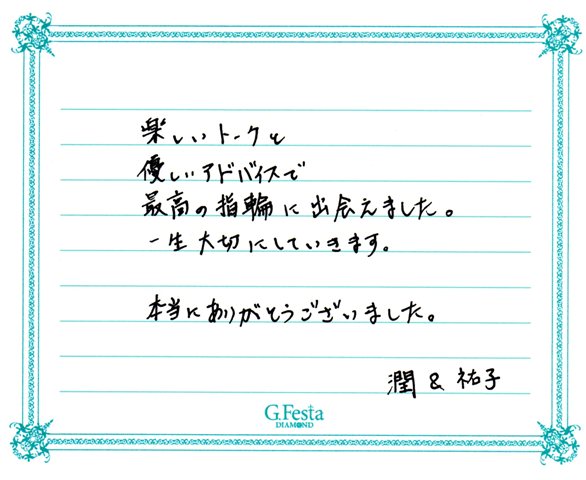 楽しいトークと
優しいアドバイスで
最高の指輪に出会えました。
一生大切にしていきます。
本当にありがとうございました。
潤 & 祐子
G.Festa
DIAMOND